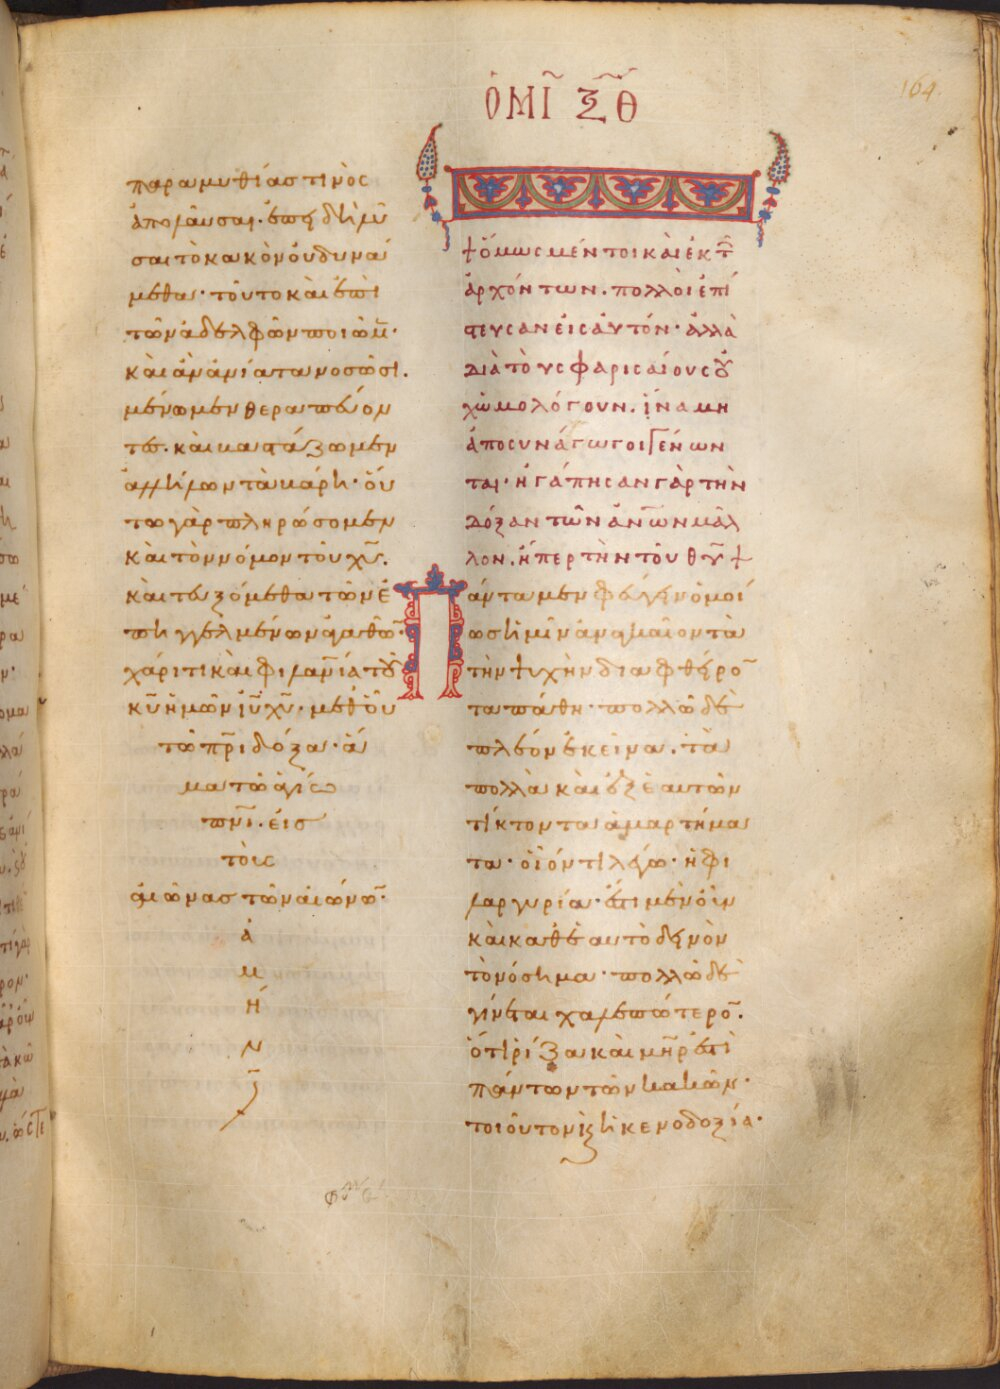 ὉΜΙ ΞΘ
164
παραμυθίας τινὸς
ἀπολαῦσαι· ἕως δὲ λῦ
σαι τὸ κακὸν οὐ δυνά
μεθα· τοῦτο καὶ ἐπὶ
τῶν ἀδελφῶν ποιῶμ̅·
καὶ ἂν ἀνίατα νοσῶσι.
μένωμεν θεραπεύον
τες. καὶ κατάξωμεν
ἀλλήλων τὰ βάρη· οὕ
τω γὰρ πληρώσομεν
καὶ τὸν νόμον τοῦ χ̅υ̅.
καὶ τευξόμεθα τῶν ἐ
πηγγελμένων ἀγαθῶ̅·
χάριτι καὶ φιλαν̅ία τοῦ
κ̅υ̅ ἡμῶν ι̅υ̅ χ̅υ̅· μεθ οὗ
τῶ π̅ρ̅ι δόξα· ἅ
μα τῶ ἁγίω
π̅ν̅ι. εἰς
τοὺς
αἰῶνας τῶν αἰώνω̅·
Ἀ
Μ
Ή
Ν
ὅμως μέντοι καὶ ἐκ τ̅
ἀρχόντων. πολλοὶ ἐπί
στευσαν εἰς αὐτόν· ἀλλὰ
διὰ τοὺς φαρισαίους οὐ
χ ὡμολόγουν. ἵνα μὴ
ἀποσυνάγωγοι γένων
ται· ἠγάπησαν γὰρ τὴν
δόξαν τῶν ἀν̅ων μᾶλ
λον. ἤπερ τὴν τοῦ θ̅υ̅
Πάντα μὲν φευγεῖν ὁμοί
ως ἡμῖν ἀναγκαῖον τὰ
τὴν ψυχὴν διαφθείρο̅
τα πάθη· πολλῶ δὲ
πλέον ἐκεῖνα. τὰ
πολλὰ καὶ ἐξ ἑαυτῶν
τίκτοντα ἁμαρτήμα
τα· οἷόν τι λέγω· ἡ φι
λαργυρία· ἔστι μὲν οὖν
καὶ καθ ἑαυτὸ δεινὸν
τὸ νόσημα· πολλῶ δὲ
γίνεται χαλεπώτερο̅.
ὅτι ῥίζα καὶ μ̅η̅ρ ἐστὶ
πάντων τῶν κακῶν·
τοιοῦτον καὶ ἡ κενοδοξία·